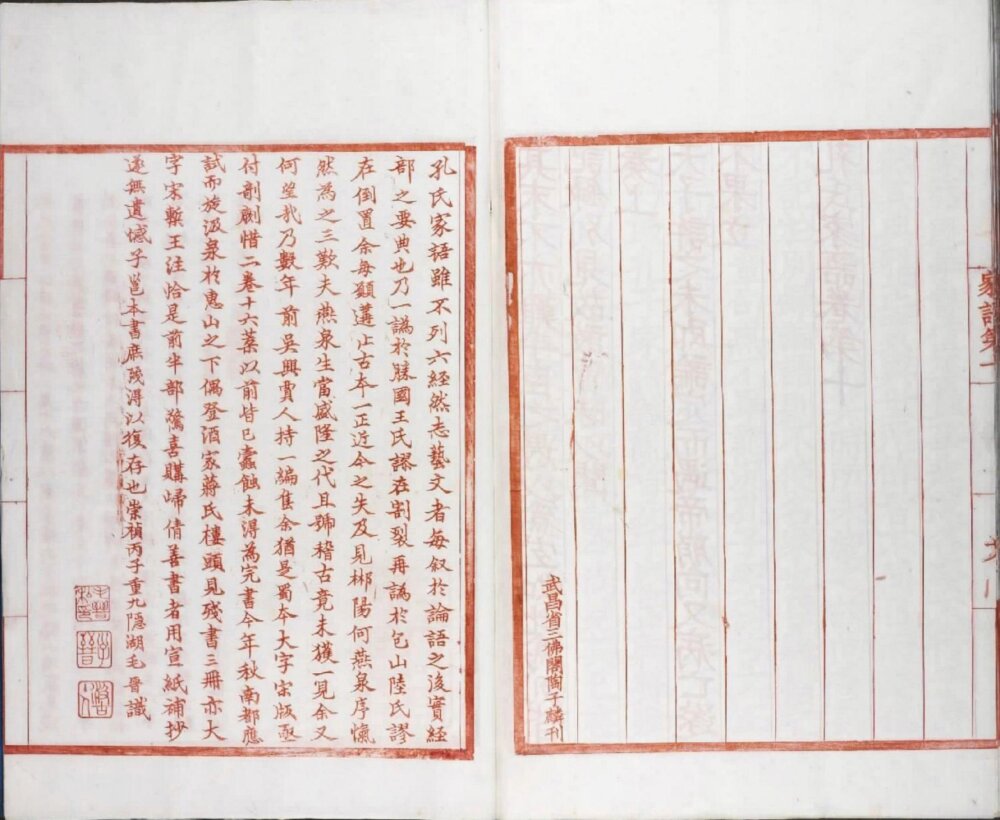 家語卷十
武昌省三佛閣陶子麟刊
孔氏家語雖不列六經然志藝文者每叙於論語之後實經
部之要典也乃一譌於勝國王氏謬在割裂再譌於包山陸氏謬
在倒置余每顓遘止古本一正近今之失及見郴陽何燕泉序愾
然為之三歎夫燕泉生當盛隆之代且號稽古竟未獲一見余又
何望哉乃數年前吳興賈人持一編售余猶是蜀本大字宋版亟
付剞劂惜二卷十六葉以前皆已蠹蝕未淂為完書今年秋南都應
試而旋汲泉於惠山之下偶登酒家蔣氏樓頭見殘書三冊亦大
字宋槧王注恰是前半部驚喜購歸倩善書者用宣紙補抄
遂無遺憾子邕本書庶幾淂以復存也崇禎丙子重九隱湖毛晉識
毛晉私印
子晉